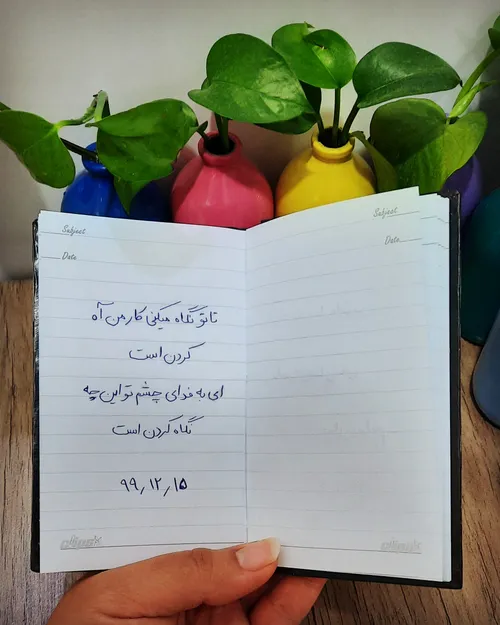 Subject
Date
تا تو نگاه میکنی کار من آه
کردن است
ای به فدای چشم تو این چه
نگاه کردن است
۹۹٫۱۲٫۱۵
Subject
Date